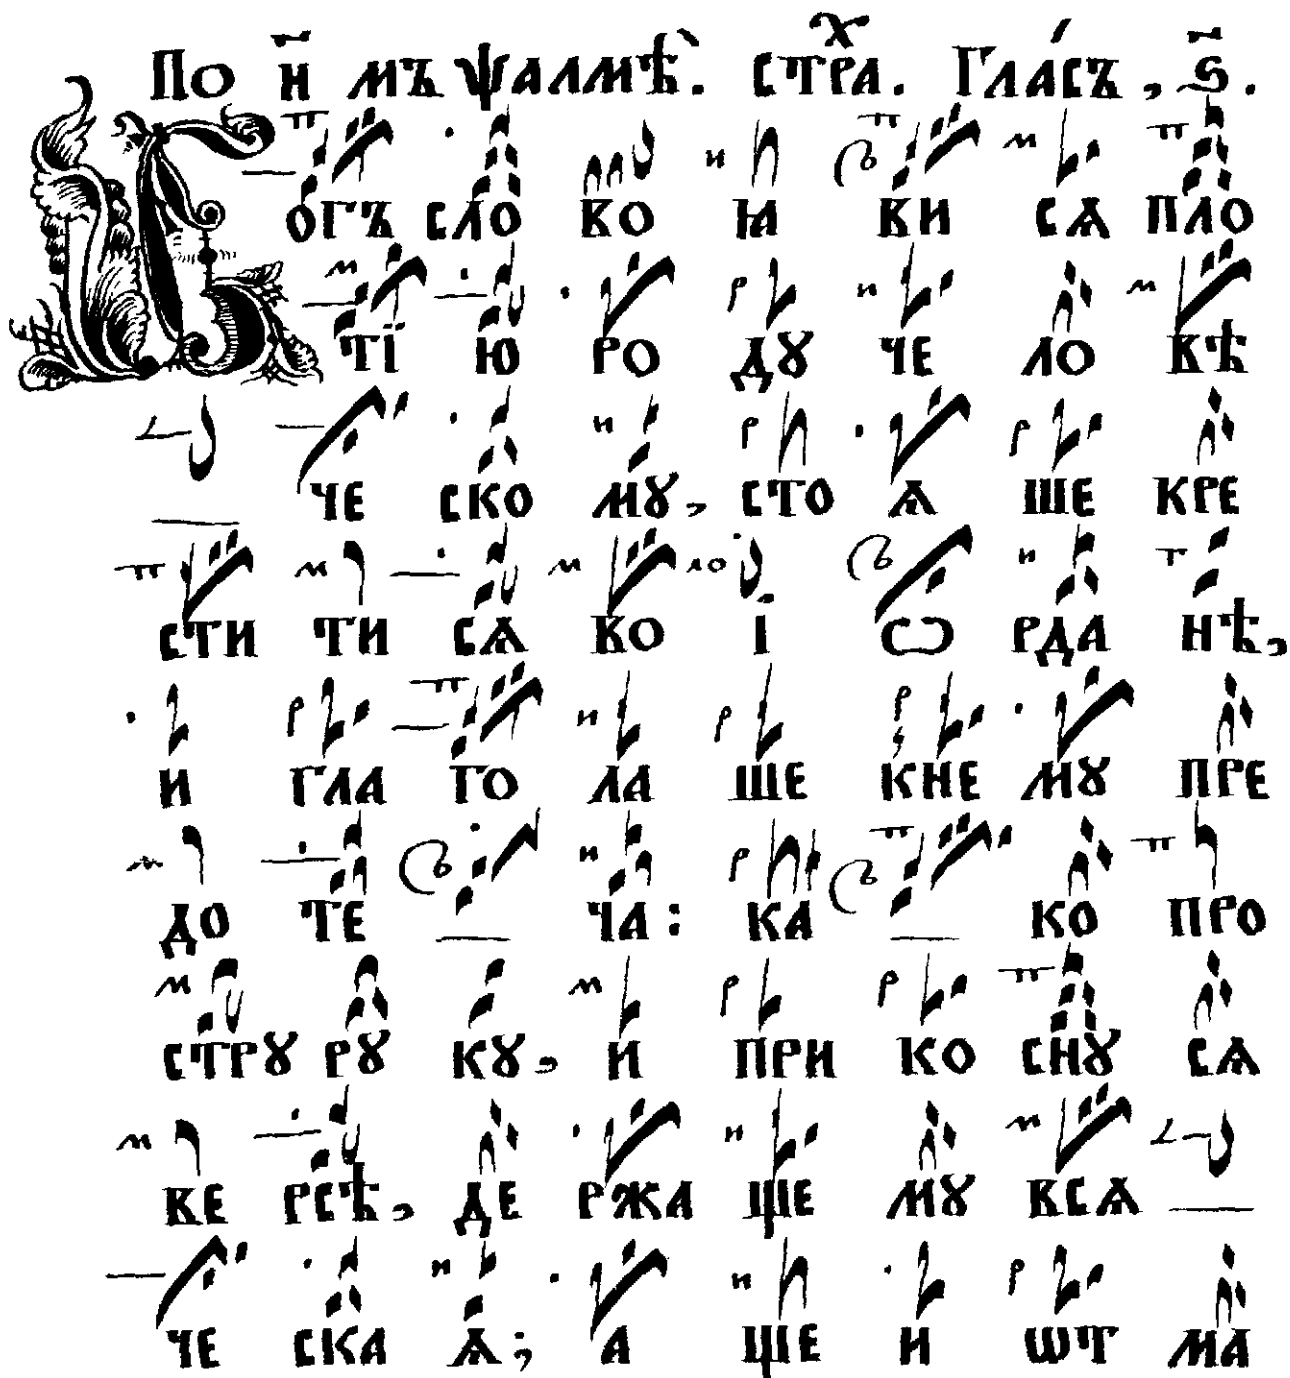 По н҃ мъ ѱалмѣ̀. стрⷯа. Гла́съ, ѕ҃.
Богъ сло во ꙗ ви сѧ пло
ті ю ро дꙋ че ло вѣ
че ско мꙋ, сто ѧ ше кре
сти ти сѧ во і ѡ рда нѣ,
и гла го ла ше кне мꙋ пре
до те ча: ка ко про
стрꙋ рꙋ кꙋ, и при ко снꙋ сѧ
ве рсѣ, де ржа ще мꙋ всѧ
че ска ѧ; а ще и ѿ ма